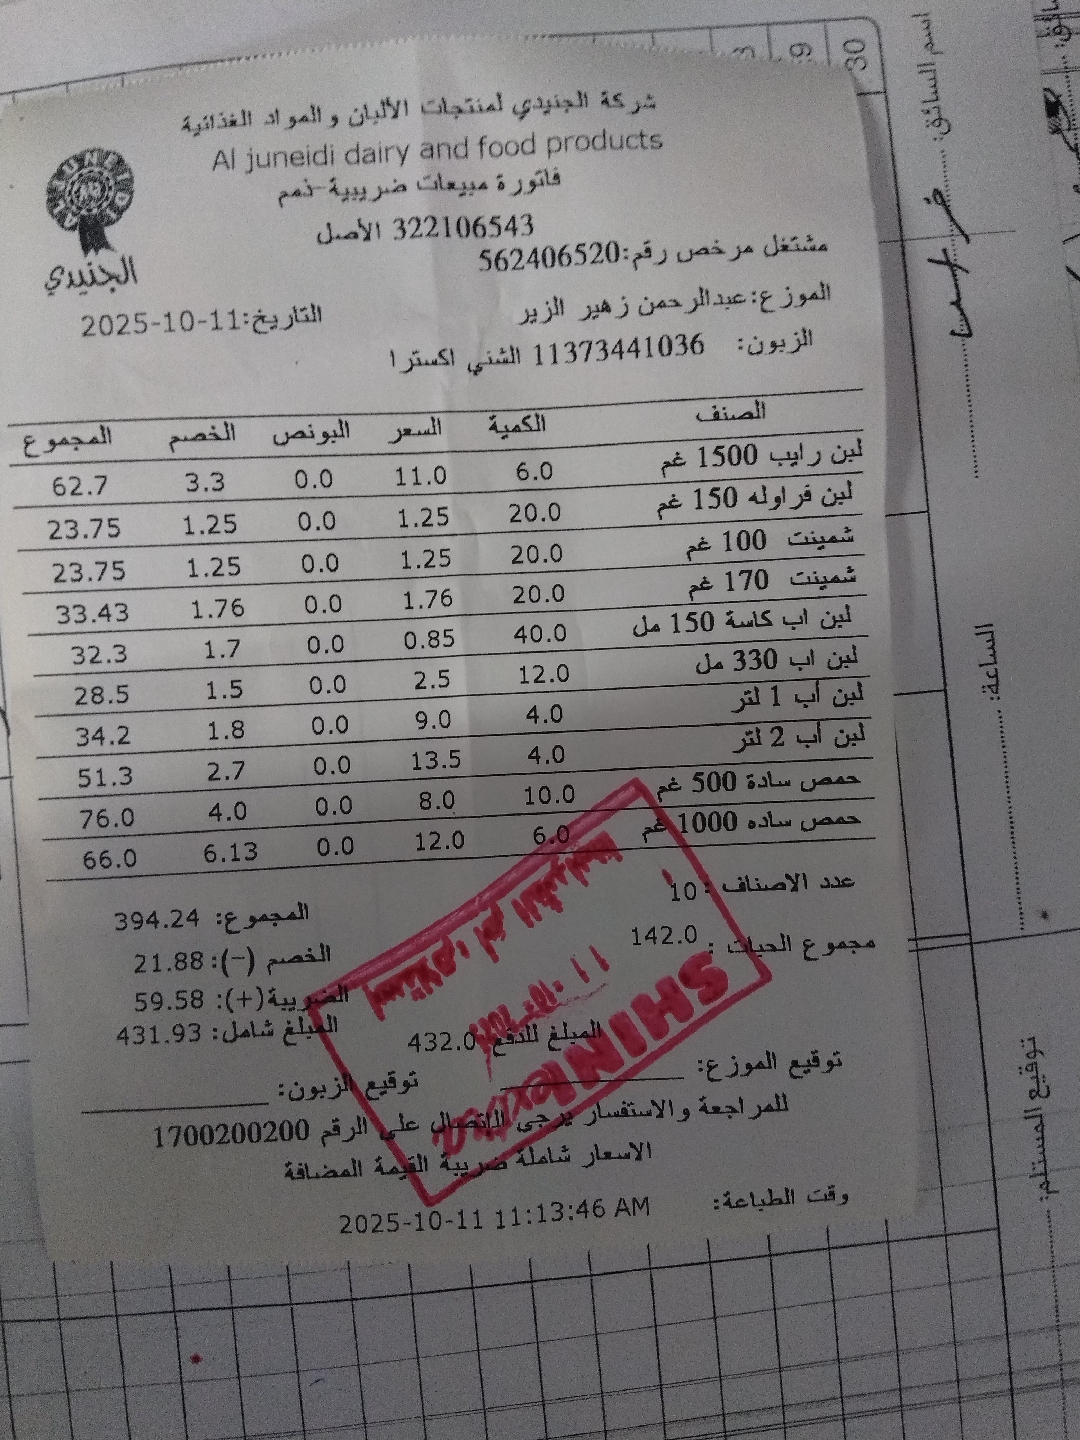 شركة الجنيدي لمنتجات الألبان و المواد الغذائية
Al juneidi dairy and food products
فاتورة مبيعات ضريبية-ذمم
322106543 الأصل
مشتغل مرخص رقم:562406520
الجنيدي
الموزع:عبدالرحمن زهير الزير
التاريخ:2025-10-11
الزبون: 11373441036 الشني اكسترا
الصنف الكمية السعر البونص الخصم المجموع
لبن رايب 1500 غم 6.0 11.0 0.0 3.3 62.7
لبن فراوله 150 غم 20.0 1.25 0.0 1.25 23.75
شمينت 100 غم 20.0 1.25 0.0 1.25 23.75
شمينت 170 غم 20.0 1.76 0.0 1.76 33.43
لبن اب كاسة 150 مل 40.0 0.85 0.0 1.7 32.3
لبن اب 330 مل 12.0 2.5 0.0 1.5 28.5
لبن أب 1 لتر 4.0 9.0 0.0 1.8 34.2
لبن أب 2 لتر 4.0 13.5 0.0 2.7 51.3
حمص سادة 500 غم 10.0 8.0 0.0 4.0 76.0
حمص ساده 1000 غم 6.0 12.0 0.0 6.13 66.0
عدد الاصناف : 10
المجموع: 394.24
مجموع الحبات : 142.0
الخصم (-): 21.88
الضريبة(+): 59.58
المبلغ شامل: 431.93
المبلغ للدفع 432.0
توقيع الموزع:
توقيع الزبون:
للمراجعة والاستفسار يرجى الاتصال على الرقم 1700200200
الاسعار شاملة ضريبة القيمة المضافة
وقت الطباعة: 2025-10-11 11:13:46 AM
SHINI extra
اسم السائق:
الساعة:
توقيع المستلم:
29
30